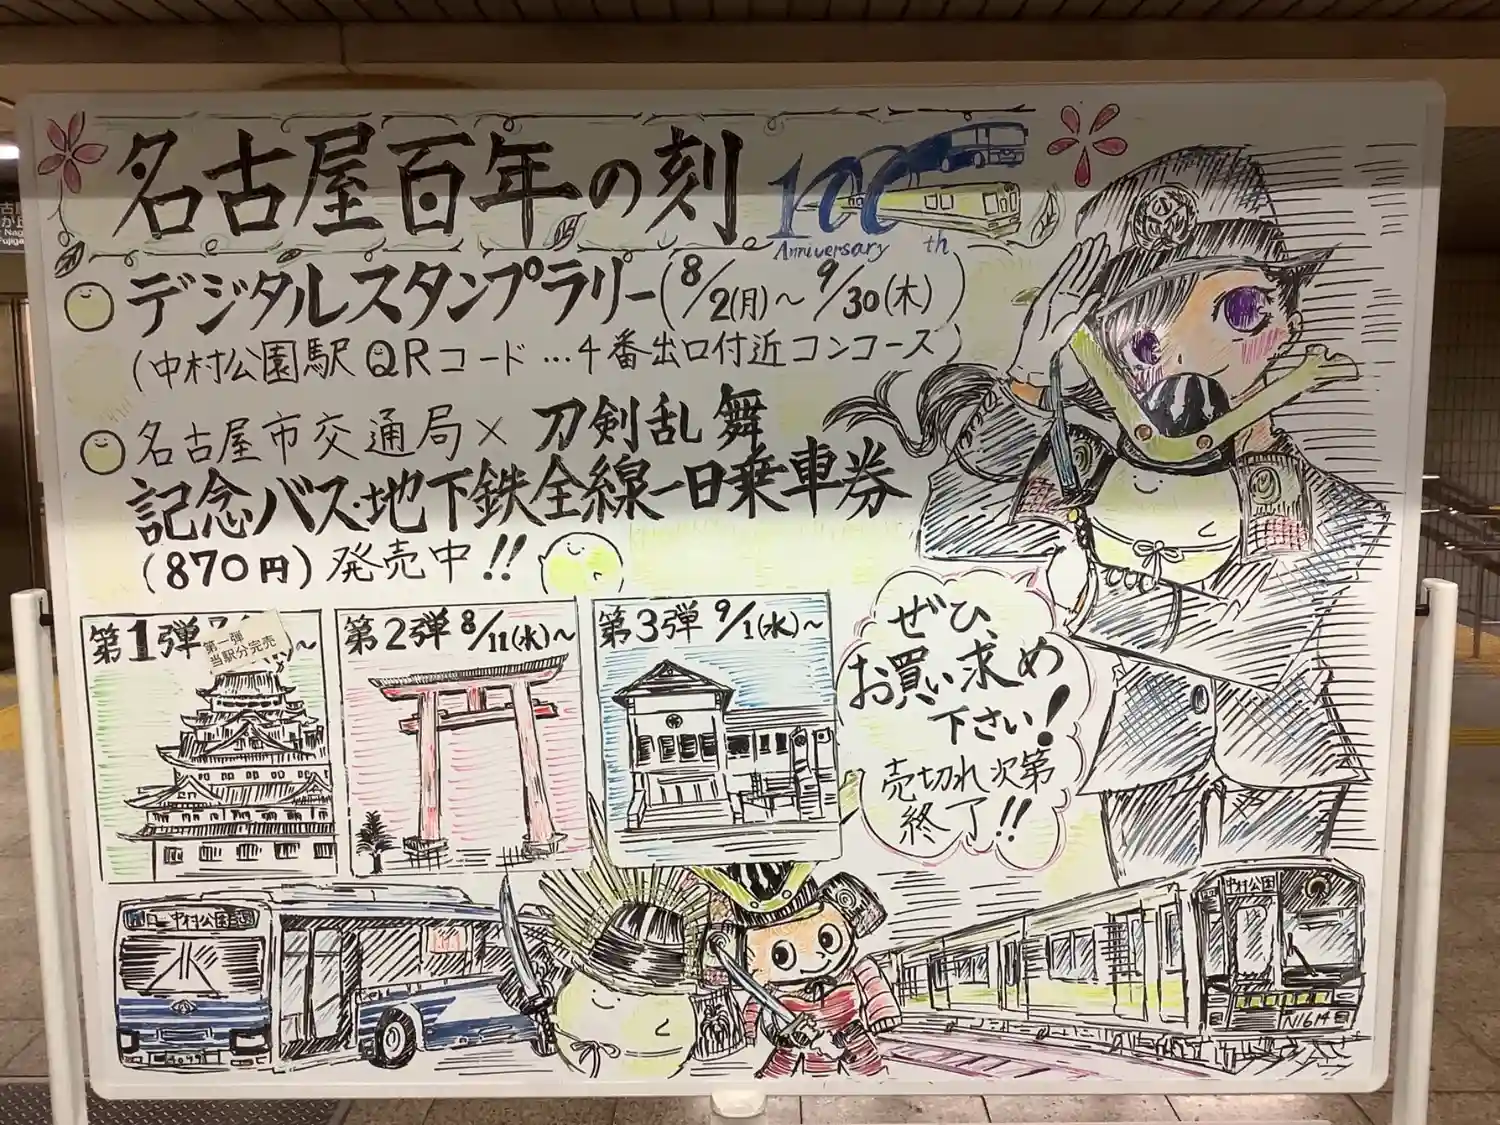 名古屋百年の刻
100th
Anniversary
デジタルスタンプラリー(8/2(月)～9/30(木))
(中村公園駅QRコード…4番出口付近コンコース)
名古屋市交通局×刀剣乱舞
記念バス・地下鉄全線一日乗車券
(870円)発売中!!
第1弾
～
第一弾
当駅分完売
第2弾 8/11(水)～
第3弾 9/1(水)～
ぜひ、
お買い求め
下さい!
売切れ次第
終了!!
中村公園
中村公園
N1614